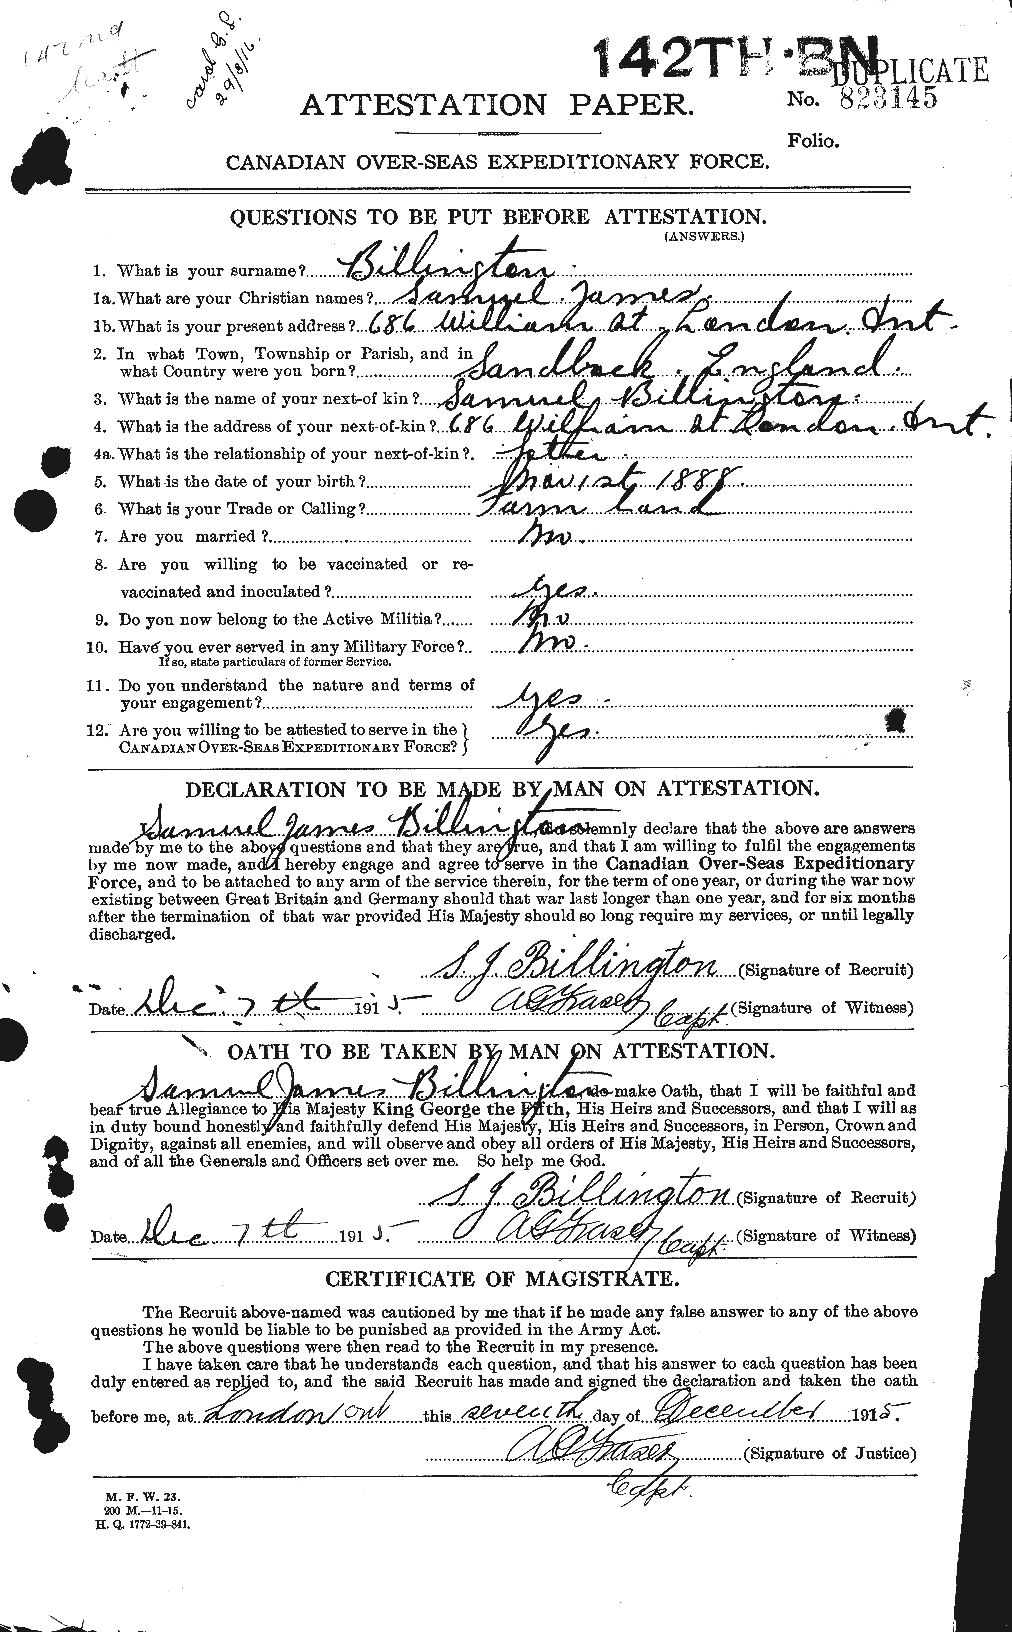 142TH·BN
DUPLICATE
ATTESTATION PAPER.
No. 823145
Folio.
CANADIAN OVER-SEAS EXPEDITIONARY FORCE.
QUESTIONS TO BE PUT BEFORE ATTESTATION.
(ANSWERS.)
1. What is your surname? Billington
1a. What are your Christian names? Samuel James
1b. What is your present address? 686 William St London. Ont.
2. In what Town, Township or Parish, and in
what Country were you born? Sandback. England.
3. What is the name of your next-of kin? Samuel Billington.
4. What is the address of your next-of-kin? 686 William St London. Ont.
4a. What is the relationship of your next-of-kin? father
5. What is the date of your birth? Nov 1st, 1888.
6. What is your Trade or Calling? Farm Land
7. Are you married? No.
8. Are you willing to be vaccinated or re-
vaccinated and inoculated? Yes.
9. Do you now belong to the Active Militia? No
10. Have you ever served in any Military Force? No.
If so, state particulars of former Service.
11. Do you understand the nature and terms of
your engagement? Yes
12. Are you willing to be attested to serve in the
CANADIAN OVER-SEAS EXPEDITIONARY FORCE? Yes.
DECLARATION TO BE MADE BY MAN ON ATTESTATION.
I, Samuel James Billington, do solemnly declare that the above are answers
made by me to the above questions and that they are true, and that I am willing to fulfil the engagements
by me now made, and I hereby engage and agree to serve in the Canadian Over-Seas Expeditionary
Force, and to be attached to any arm of the service therein, for the term of one year, or during the war now
existing between Great Britain and Germany should that war last longer than one year, and for six months
after the termination of that war provided His Majesty should so long require my services, or until legally
discharged.
S. J Billington (Signature of Recruit)
Date Dec. 7th 1915. A G Fraser Capt. (Signature of Witness)
OATH TO BE TAKEN BY MAN ON ATTESTATION.
Samuel James Billington do make Oath, that I will be faithful and
bear true Allegiance to His Majesty King George the Fifth, His Heirs and Successors, and that I will as
in duty bound honestly and faithfully defend His Majesty, His Heirs and Successors, in Person, Crown and
Dignity, against all enemies, and will observe and obey all orders of His Majesty, His Heirs and Successors,
and of all the Generals and Officers set over me. So help me God.
S J Billington (Signature of Recruit)
Date Dec. 7th 1915. A G Fraser Capt. (Signature of Witness)
CERTIFICATE OF MAGISTRATE.
The Recruit above-named was cautioned by me that if he made any false answer to any of the above
questions he would be liable to be punished as provided in the Army Act.
The above questions were then read to the Recruit in my presence.
I have taken care that he understands each question, and that his answer to each question has been
duly entered as replied to, and the said Recruit has made and signed the declaration and taken the oath
before me, at London Ont this seventh day of December 1915.
A G Fraser (Signature of Justice)
Capt.
M. F. W. 23.
200 M.—11-15.
H. Q. 1772-39-841.